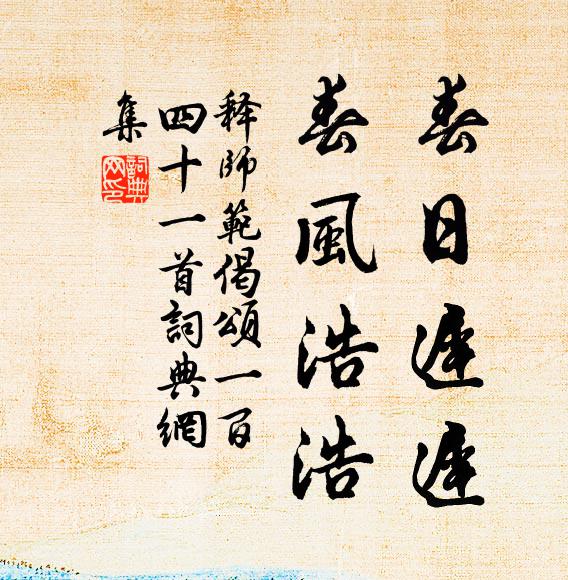 春日遲遲
春風浩浩
释師範偈頌一百
四十一首詞典網
集
詞典
网印